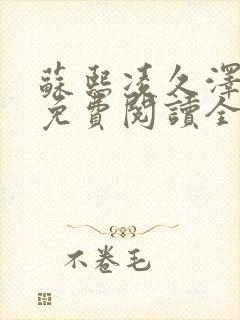 蘇熙凌久澤
免費閱讀全
不卷毛